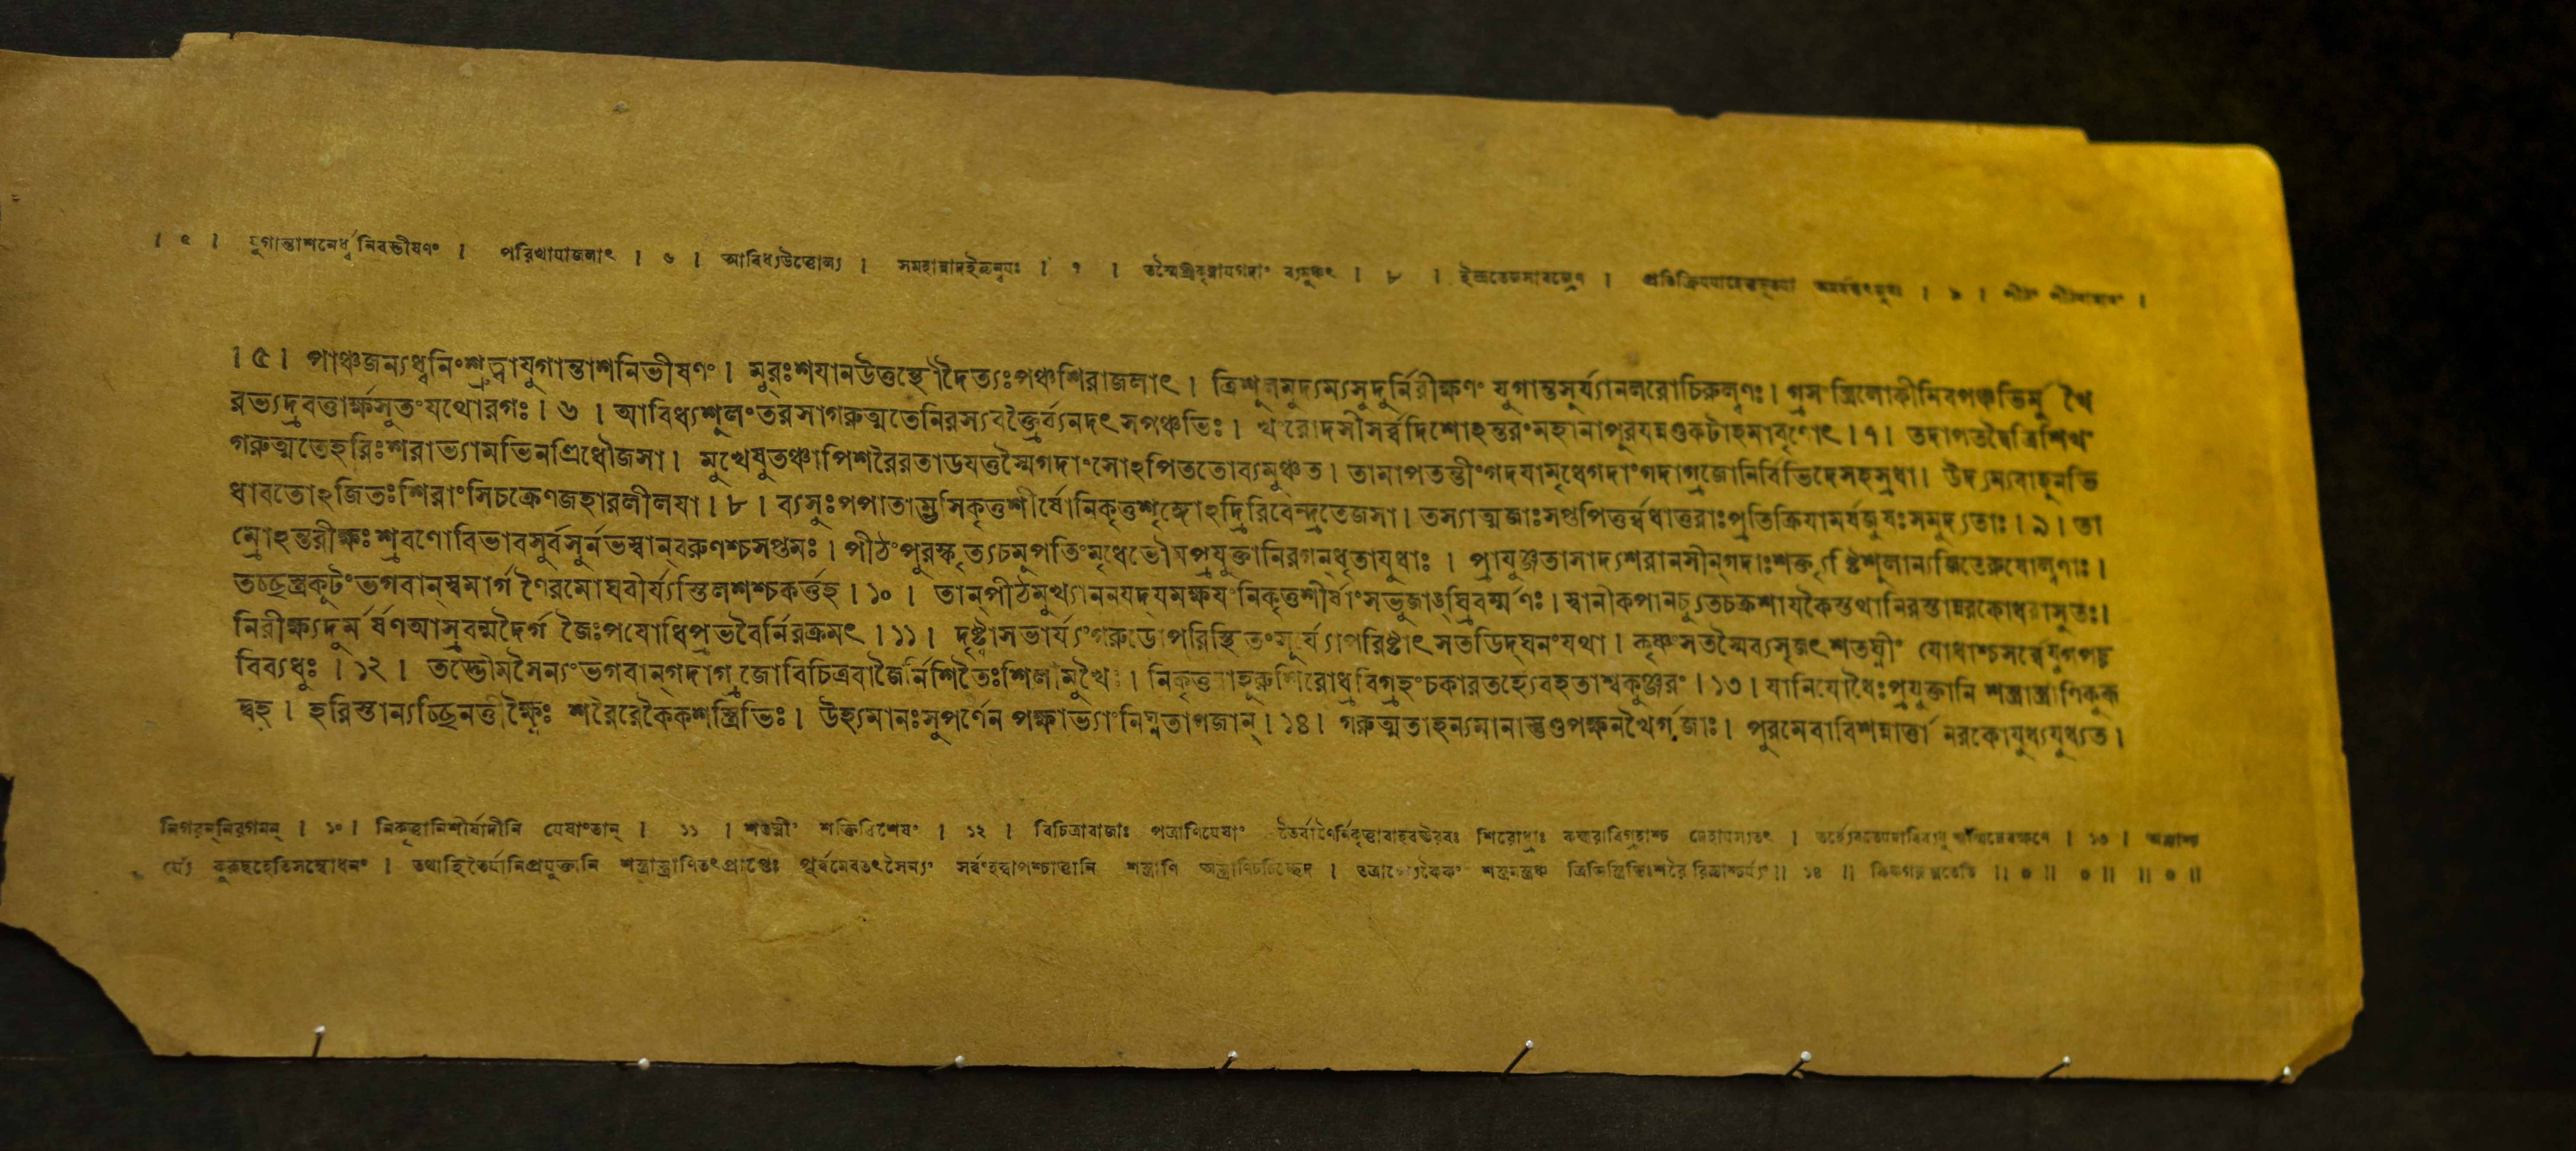 । ৫ । যুগান্তাশনের্ধ্বনিবদ্ভীষণং । পরিখাযাজলাৎ । ৬ । আবিধ্যউত্তোল্য । সমহান্নাদইত্যন্বযঃ । ৭ । তস্মৈশ্রীকৃষ্ণাযগদাং ব্যমুঞ্চৎ । ৮ । ইন্দ্রতেজসাবজ্রেণ । । ৯ । পীঠং ।
। ৫ । পাঞ্চজন্যধ্বনিংশ্রুত্বাযুগান্তাশনিভীষণং । মুরঃশযানউত্তস্থৌদৈত্যঃপঞ্চশিরাজলাৎ । ত্রিশূলমুদ্যম্যসুদুর্নিরীক্ষণং যুগান্তসূর্য্যানলরোচিরুল্বণঃ । গ্রসংস্ত্রিলোকীমিবপঞ্চভির্মু খৈ
রভ্যদ্রবত্তার্ক্ষসুতংযথোরগঃ । ৬ । আবিধ্যশূলংতরসাগরুত্মতেনিরস্যবক্ত্রৈর্ব্যনদৎ সপঞ্চভিঃ । খংরোদসীসর্ব্বদিশোঽন্তরংমহানাপূরযন্নণ্ডকটাহমাবৃণোৎ । ৭ । তদাপতদ্বৈত্রিশিখং
গরুত্মতেহরিঃশরাভ্যামভিনত্ত্রিধৌজসা । মুখেষুতঞ্চাপিশরৈরতাডযত্তস্মৈগদাংসোঽপিততোব্যমুঞ্চত । তামাপতন্তীংগদযামৃধেগদাংগদাগ্রজোনির্বিভিদেসহস্রধা । উদ্যম্যবাহূনভি
ধাবতোঽজিতঃশিরাংসিচক্রেণজহারলীলযা । ৮ । ব্যসুঃপপাতাম্ভসিকৃত্তশীর্ষোনিকৃত্তশৃঙ্গোঽদ্রিরিবেন্দ্রতেজসা । তস্যাত্মজাঃসপ্তপিতুর্ব্বধাতুরাঃপ্রতিক্রিযামর্ষজুষঃসমুদ্যতাঃ । ৯ । তা
ম্রোঽন্তরীক্ষঃশ্রবণোবিভাবসুর্বসুর্নভস্বান্বরুণশ্চসপ্তমঃ । পীঠংপুরস্কৃত্যচমূপতিংমৃধেভৌমপ্রযুক্তানিরগন্ধৃতাযুধাঃ । প্রাযুঞ্জতাসাদ্যশরানসীন্গদাঃশক্ত্যৃষ্টিশূলান্যজিতেরুষোল্বণাঃ ।
তচ্ছস্ত্রকূটংভগবান্স্বমার্গ ণৈরমোঘবীর্য্যস্তিলশশ্চকর্ত্তহ । ১০ । তান্পীঠমুখ্যাননযদ্যমক্ষযংনিকৃত্তশীর্ষাংসভুজাঙ্ঘ্রিবর্ম্মণঃ । স্বানীকপানচ্যুতচক্রশাযকৈস্তথানিরস্তান্নরকোধরাসুতঃ ।
নিরীক্ষ্যদুর্ম র্ষণআস্রবন্মদৈর্গ জৈঃপযোধিপ্রভবৈর্নিরক্রমৎ । ১১ । দৃষ্ট্বাসভার্য্যংগরুডোপরিস্থিতংসূর্য্যোপরিষ্টাৎ সতডিদ্ঘনংযথা । কৃষ্ণংসতস্মৈব্যসৃজৎ শতঘ্নীং যোধাশ্চসর্ব্বেযুগপচ্চ
বিব্যধুঃ । ১২ । তদ্ভৌমসৈন্যংভগবান্গদাগ্রজোবিচিত্রবাজৈর্নিশিতৈঃশিলীমুখৈঃ । নিকৃত্তবাহূরুশিরোধ্রবিগ্রহংচকারতর্হ্যেবহতাশ্বকুঞ্জরং । ১৩ । যানিযোধৈঃপ্রযুক্তানি শস্ত্রাস্ত্রাণিকুরূ
দ্বহ । হরিস্তান্যচ্ছিনত্তীক্ষ্ণৈঃ শরৈরেকৈকশস্ত্রিভিঃ । উহ্যমানঃসুপর্ণেন পক্ষাভ্যাংনিঘ্নতাগজান্ । ১৪ । গরুত্মতাহন্যমানাস্তুণ্ডপক্ষনখৈর্গজাঃ । পুরমেবাবিশন্নার্ত্তা নরকোযুধ্যযুধ্যত ।
নিগরন্নিরগমন্ । ১০ । নিকৃত্তানিশীর্ষাদীনি যেষাংতান্ । ১১ । শতঘ্নীং শক্তিবিশেষং । ১২ । বিচিত্রাবাজাঃ পত্রাণিযেষাং তৈর্বাণৈর্নিকৃত্তাবাহবঊরবঃ শিরোধ্রাঃ কন্ধরাবিগ্রহাশ্চ দেহাযস্যতৎ । । ১৩ ।
র্যে্য কুরূদ্বহেতিসম্বোধনং । তথাহিতৈর্যানিপ্রযুক্তানি শস্ত্রাস্ত্রাণিতৎপ্রাপ্তেঃ পূর্বমেবতৎসৈন্যং সর্বংহত্বাপশ্চাত্তানি শস্ত্রাণি অস্ত্রাণিচচিচ্ছেদ । তত্রাপ্যেকৈকং শস্ত্রমস্ত্রঞ্চ ত্রিভিস্ত্রিভিঃশরৈ ॥ ১৪ ॥ ॥ ० ॥ ० ॥ ॥ ० ॥